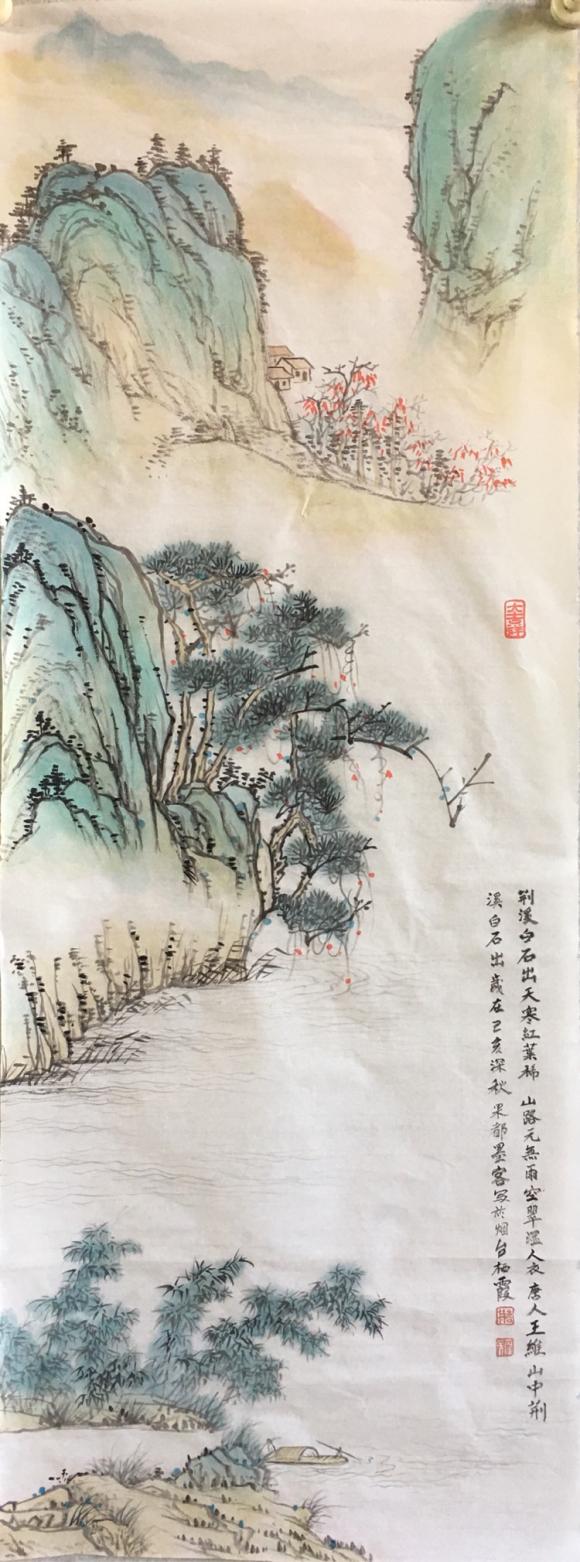 荆溪白石出天寒紅葉稀 山路元無雨空翠濕人衣 唐人王維山中荆
溪白石出歲在己亥深秋果都墨客写於烟台栖霞